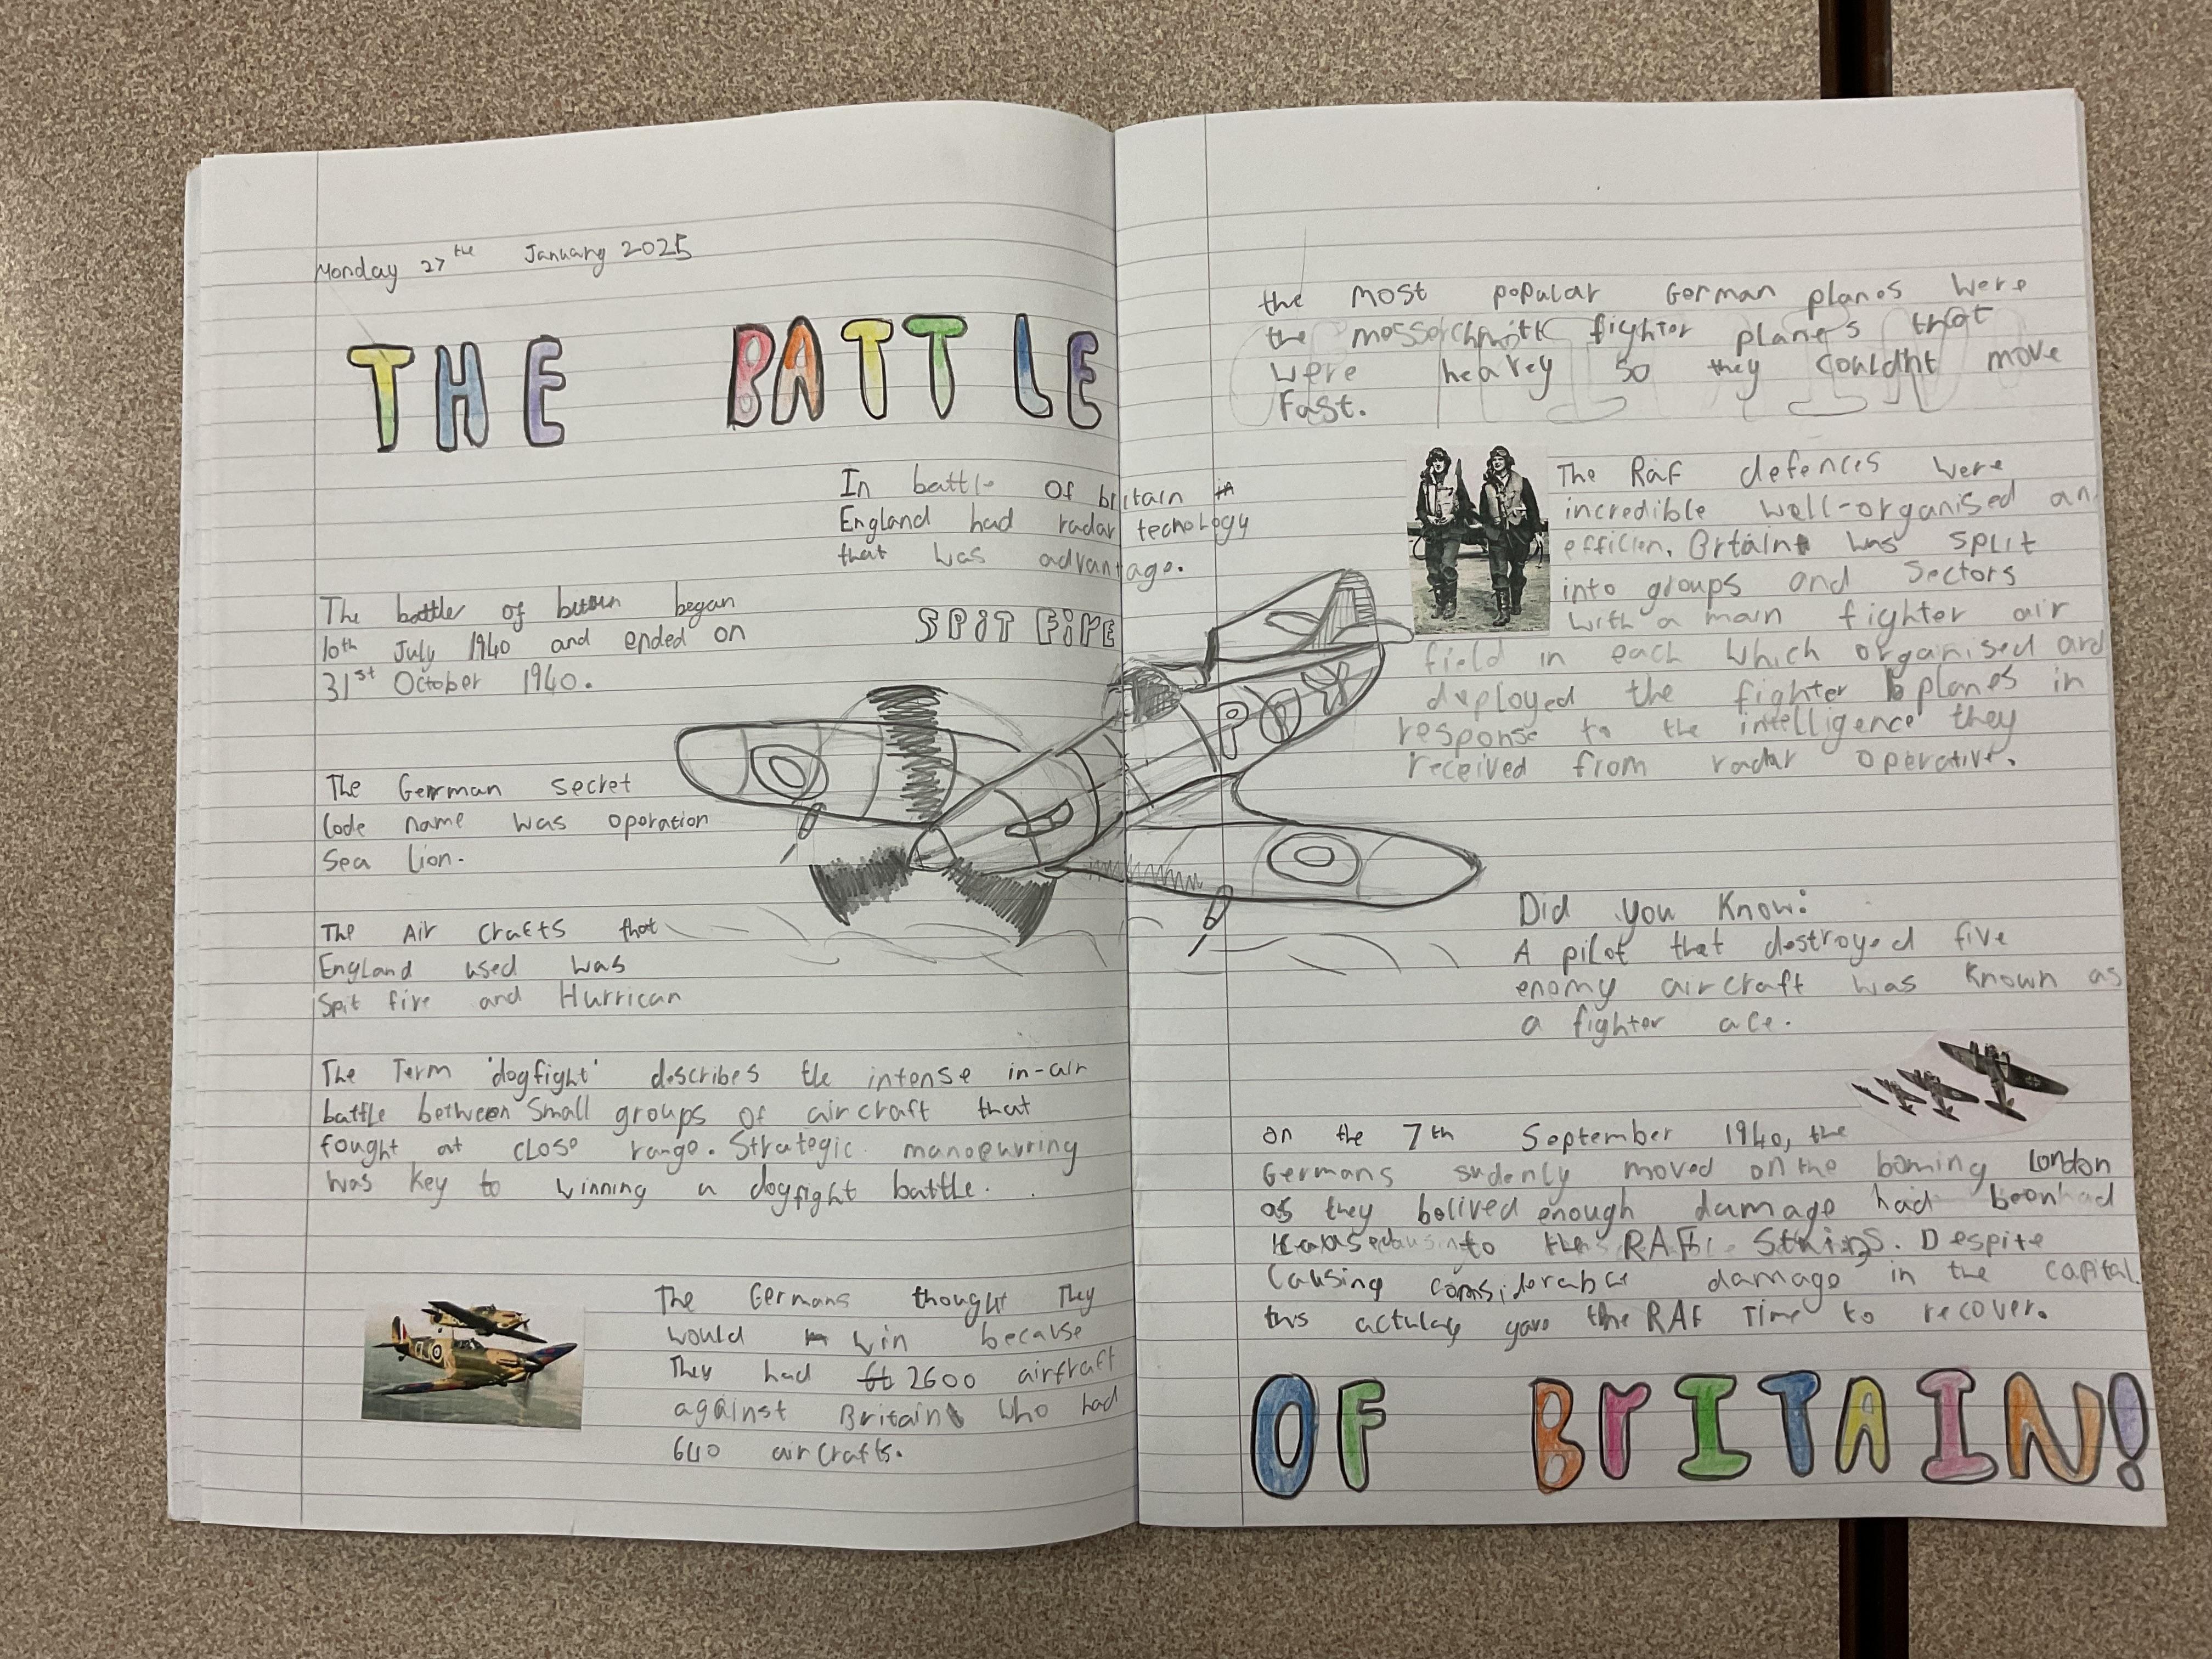 Monday 27th January 2025
THE BATTLE
In battle Of britain
England had radar technology
that was advantage.
The battler of began
10th July 1940 and ended on
31st October 1940.
SPIT FIRE
The German secret
Code name was oporation
Sea lion.
The Air crafts that
England used was
Spit fire and Hurrican
The Term 'dogfight' describes the intense in-air
battle between Small groups of aircraft that
fought at close range. Strategic manoeuvring
was key to winning a dogfight battle.
The Germans thought They
would win because
They had 2600 aircraft
against Britain who had
640 air crafts.
the most popular German planes were
the fighter planes that
were heavey so they couldnt move
Fast.
The Raf defences were
incredible well-organised an
efficien. was split
into groups and sectors
with a main fighter air
field in each which organised and
deployed the fighter planes in
response to the intelligence they
received from radar operative.
P
Did you Know:
A pilot that destroyed five
enemy aircraft was known as
a fighter ace.
on the 7th September 1940, the
Germans sudenly moved on the boming London
as they belived enough damage had been had
to the RAF Despite
Causing damage in the capital
this gave the RAF Time to recover.
OF BrITAIN!